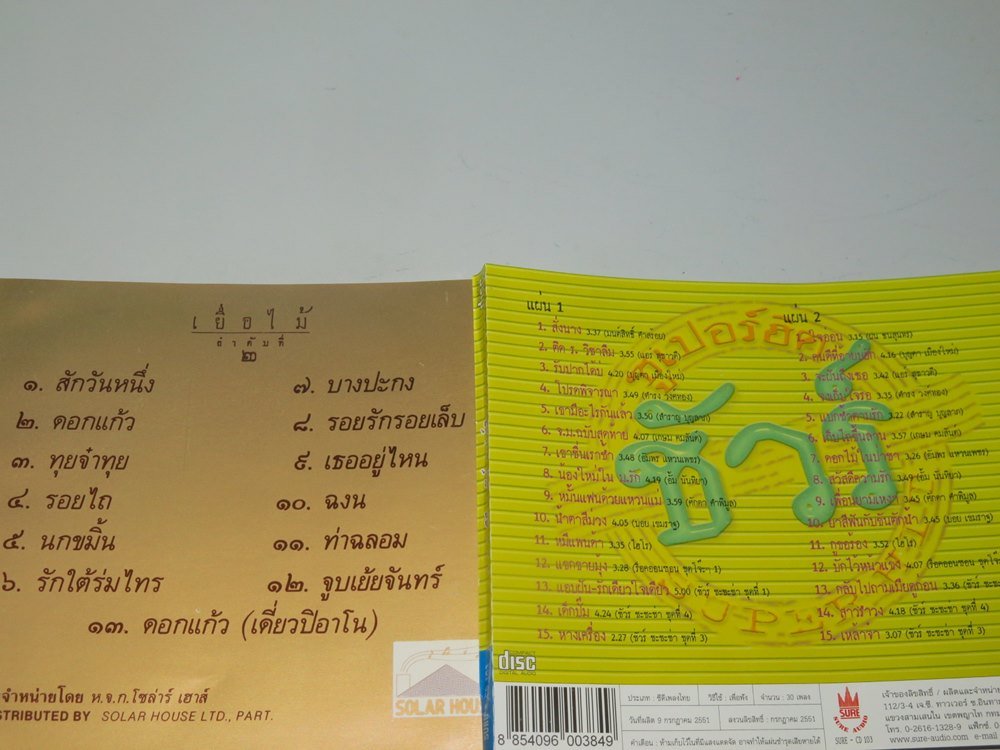 เยื่อไม้
ลำดับที่
๒
๑. สักวันหนึ่ง
๒. ดอกแก้ว
๓. ทุยจ๋าทุย
๔. รอยไถ
๕. นกขมิ้น
๖. รักใต้ร่มไทร
๗. บางปะกง
๘. รอยรักรอยเล็บ
๙. เธออยู่ไหน
๑๐. ฉงน
๑๑. ท่าฉลอม
๑๒. จูบเย้ยจันทร์
๑๓. ดอกแก้ว (เดี่ยวปิอาโน)
จำหน่ายโดย ห.จ.ก.โซล่าร์ เฮาส์
STRIBUTED BY SOLAR HOUSE LTD., PART.
SOLAR HOU
ซุปเปอร์ฮิต
ชัวร์
แผ่น 1
1. สั่งนาง 3.37 (มนต์สิทธิ์ คำสร้อย)
2. ติด ร. วิชาลืม 3.55 (แอร์ สุชาวดี)
3. รับปากได้บ่ 4.20 (บุญตา เมืองใหม่)
4. โปรดพิจารณา 3.49 (ดำรง วงศ์ทอง)
5. เขามีอะไรกันแล้ว 3.50 (สำราญ บุญลาภ)
6. จ.ม.ฉบับสุดท้าย 4.07 (เกษม คมสันต์)
7. เขาชื่นเราช้ำ 3.48 (อัมพร แหวนเพชร)
8. น้องใหม่ใน ม.รัก 4.19 (อั้ม นันทิยา)
9. หมั้นแฟนด้วยแหวนแม่ 3.59 (ศักดา คำพิมูล)
10. น้ำตาสีม่วง 4.05 (บอย เขมราฐ)
11. หมีแพนด้า 3.35 (ไฮโร)
12. แขกขายมุ้ง 3.28 (ร็อคออนซอน ชุดโจ๊ะๆ 1)
13. แอบฝัน-รักเดียวใจเดียว 5.00 (ชัวร์ ชะชะช่า ชุดที่ 1)
14. เด็กปั๊ม 4.24 (ชัวร์ ชะชะช่า ชุดที่ 4)
15. หางเครื่อง 2.27 (ชัวร์ ชะชะช่า ชุดที่ 3)
แผ่น 2
3.15
2. คนดีที่อ้ายบ่ฮัก 4.16 (บุญตา เมืองใหม่)
3. จะฝันถึงเธอ 3.42 (แอร์ สุชาวดี)
4. 3.35 (ดำรง วงศ์ทอง)
5. 3.22 (สำราญ บุญลาภ)
6. 3.57 (เกษม คมสันต์)
7. ดอกไม้ในป่าช้า 3.26 (อัมพร แหวนเพชร)
8. สวัสดีความรัก 3.49 (อั้ม นันทิยา)
9. เพื่อนยามเหงา 3.45 (ศักดา คำพิมูล)
10. ยาสีฟันกับขันตักน้ำ 3.45 (บอย เขมราฐ)
11. กูขอร้อง 3.52 (ไฮโร)
12. บักโว้หนาแฮง 4.07 (ร็อคออนซอน ชุดโจ๊ะๆ 1)
13. กลับไปถามเมียดูก่อน 3.36 (ชัวร์ ชะชะช่า ชุดที่
14. ลาวรำวง 4.18 (ชัวร์ ชะชะช่า ชุดที่ 4)
15. เหล้าจ๋า 3.07 (ชัวร์ ชะชะช่า ชุดที่ 3)
COMPACT
disc
DIGITAL AUDIO
8 854096 003849
ประเภท : ซีดีเพลงไทย วิธีใช้ : เพื่อฟัง จำนวน : 30 เพลง
วันที่ผลิต 9 กรกฎาคม 2551 สงวนลิขสิทธิ์ : กรกฎาคม 2551
คำเตือน : ห้ามเก็บไว้ในที่มีแสงแดดจัด อาจทำให้แผ่นชำรุดเสียหายได้
SURE
SURE AUDIO
SURE - CD 103
เจ้าของลิขสิทธิ์ / ผลิตและจำหน่าย
112/3-4 เจ.ซี. ทาวเวอร์ ซ.อินทาม
แขวงสามเสนใน เขตพญาไท กทม
โทร. 0-2616-1328-9 แฟ็กซ์. 0-
www.sure-audio.com e-mail